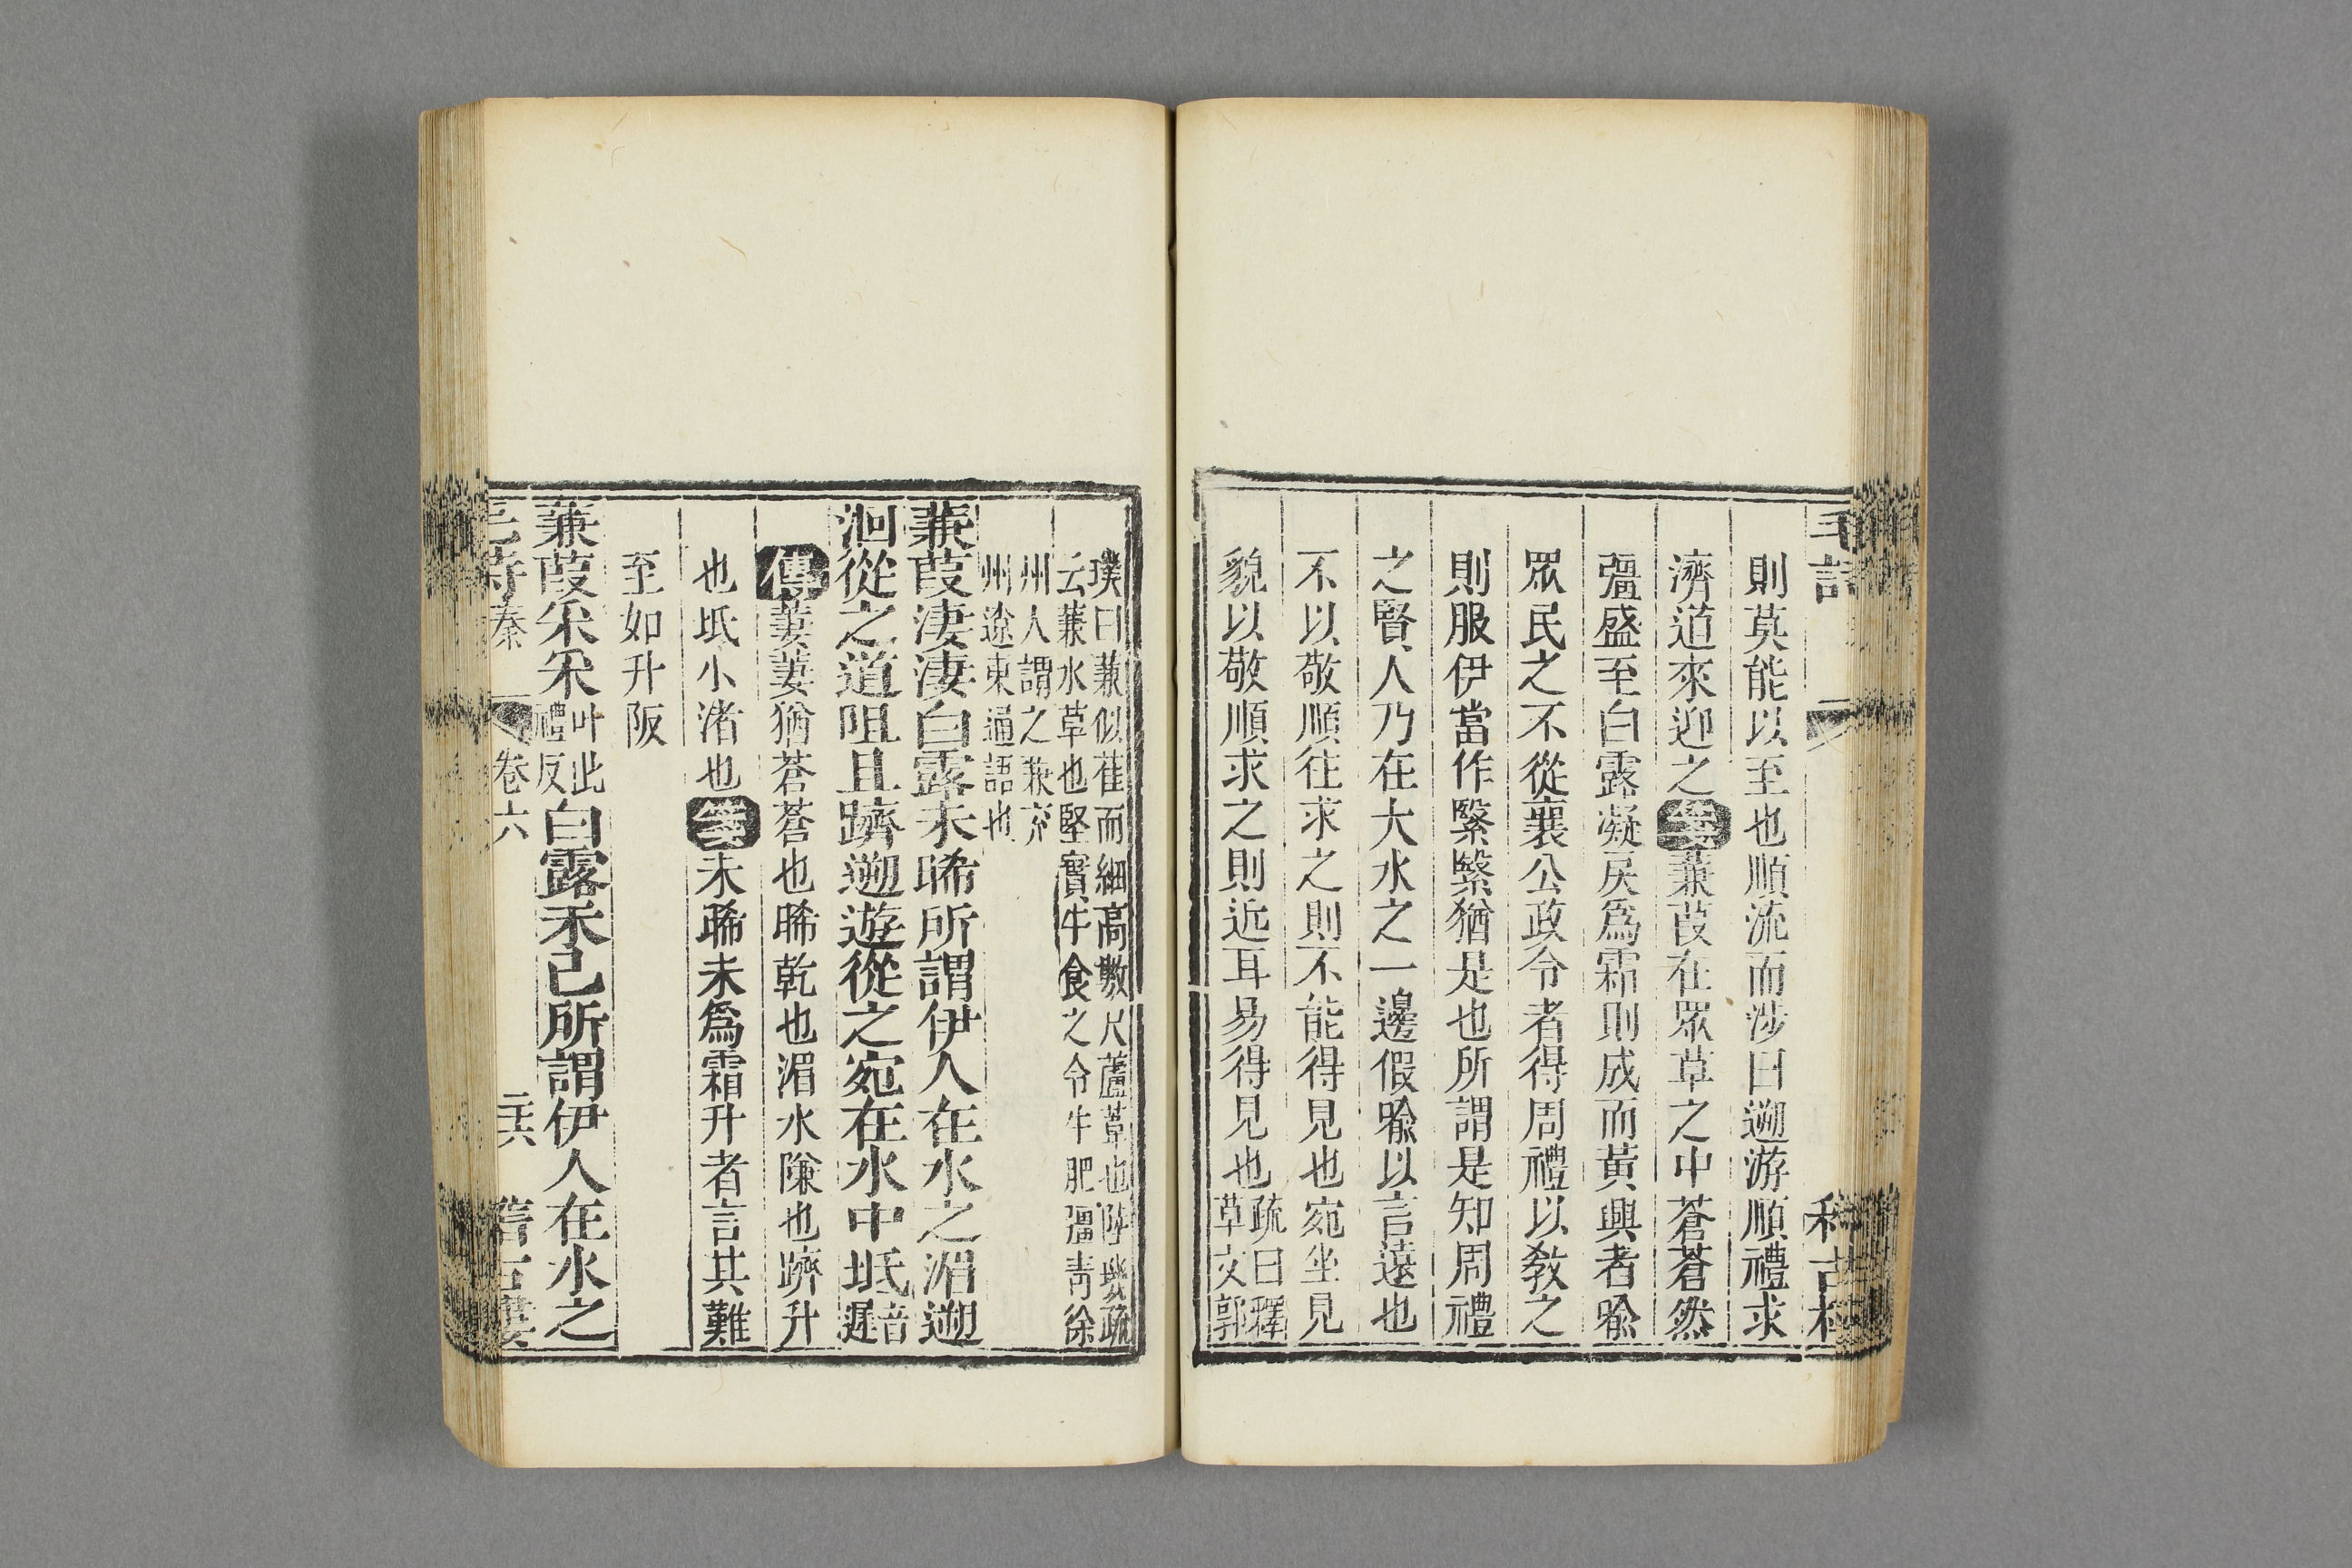 毛詩
則莫能以至也順流而涉曰遡游順禮求
濟道來迎之箋蒹葭在眾草之中蒼蒼然
彊盛至白露凝戾為霜則成而黃興者喻
眾民之不從襄公政令者得周禮以教之
則服伊當作繄繄猶是也所謂是知周禮
之賢人乃在大水之一邊假喻以言遠也
不以敬順往求之則不能得見也宛坐見
貌以敬順求之則近耳易得見也疏曰釋草文郭
璞曰蒹似萑而細高數尺蘆葦也陸璣疏
云蒹水草也堅實牛食之令牛肥彊青徐
州人謂之蒹兖
州遼東通語也
蒹葭淒淒白露未晞所謂伊人在水之湄遡
洄從之道阻且躋遡遊從之宛在水中坻音遲
傳萋萋猶蒼蒼也晞乾也湄水隒也躋升
也坻小渚也箋未晞未為霜升者言其難
至如升阪
蒹葭采采叶此禮反白露未已所謂伊人在水之
毛詩秦 卷六 二六